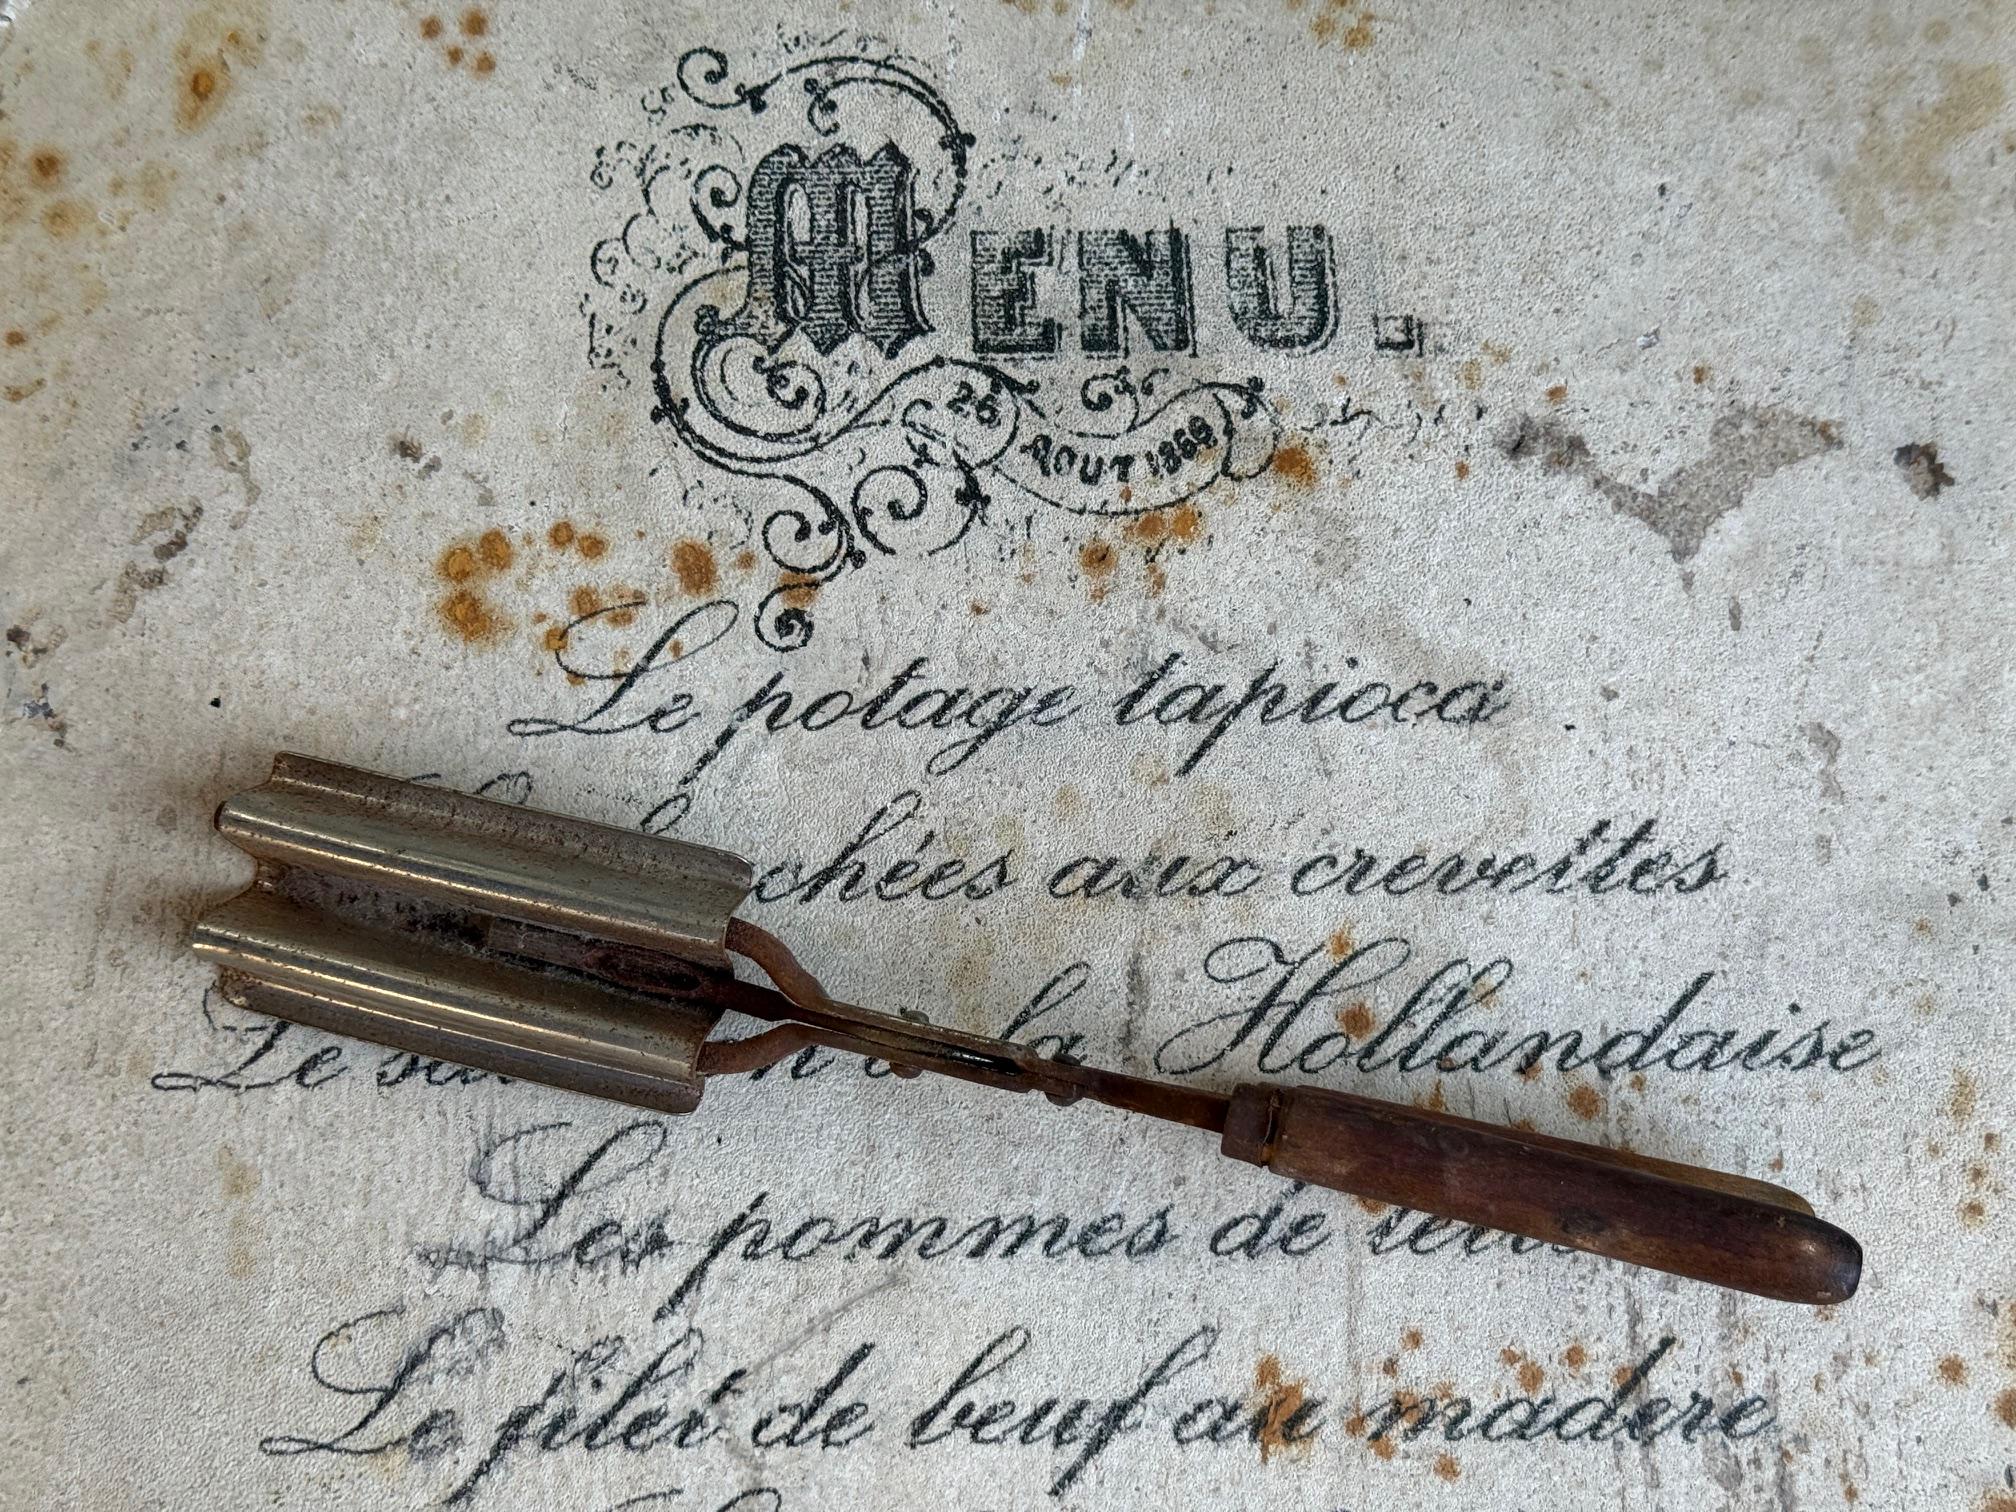 MENU.
26 AOUT 1869
Le potage tapioca
chées aux crevettes
Le la Hollandaise
Les pommes de terre
Le filet de beuf au madere